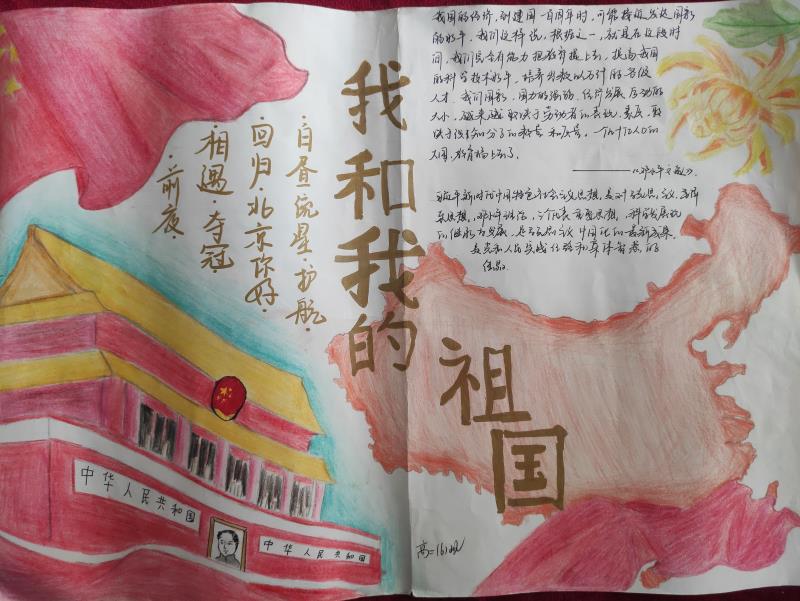 我和我的
祖国
·白昼流星·护航
回归·北京你好·
相遇·夺冠
·前夜·
我国的经济，到建国一百周年时，可能接近发达国家
的水平。我们这样说，根据之一，就是在这段时
间，我们完全有能力把教育搞上去，提高我国
的科学技术水平，培养出数以亿计的各级
人才。我们国家，国力的强弱，经济发展后劲的
大小，越来越取决于劳动者的素质，取
决于知识分子的数量和质量。一个十亿人口的
大国，教育搞上去了，
——《邓小平文选》
习近平新时代中国特色社会主义思想，是对马克思主义、毛泽
东思想，邓小平理论，三个代表重要思想，科学发展观
的继承与发展，是马克思主义中国化的最新成果。
是党和人民实践经验和集体智慧的
结晶。
中华人民共和国
中华人民共和国
高二